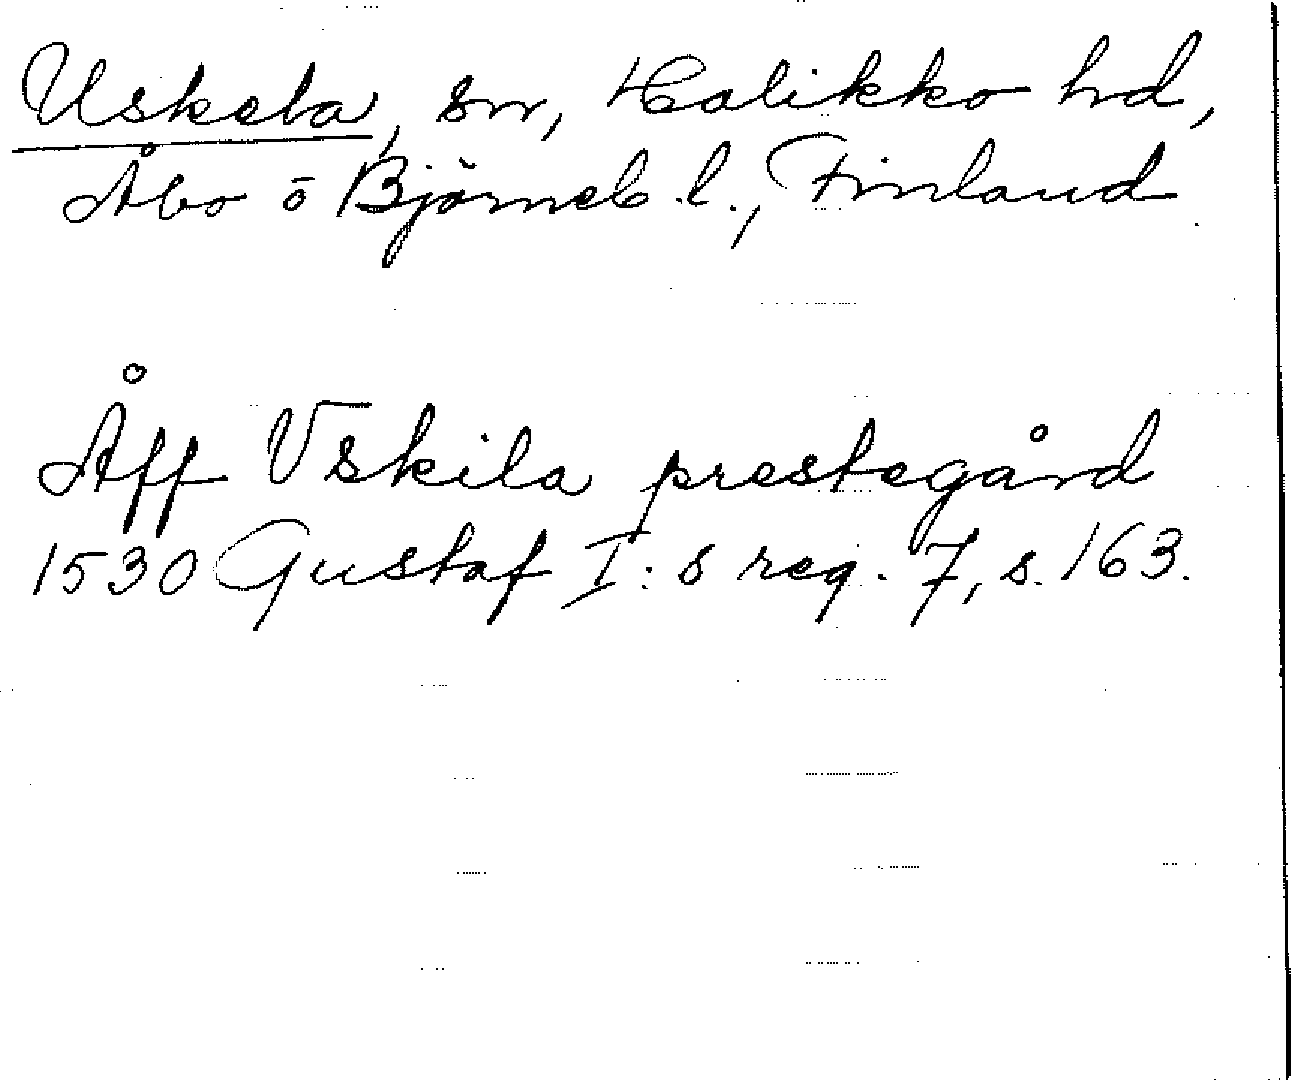 Uskela, sn, Halikko hd,
Åbo o Björneb. l., Finland
Åff Vskila prestegård
1530 Gustaf I:s reg. 7, s. 163.